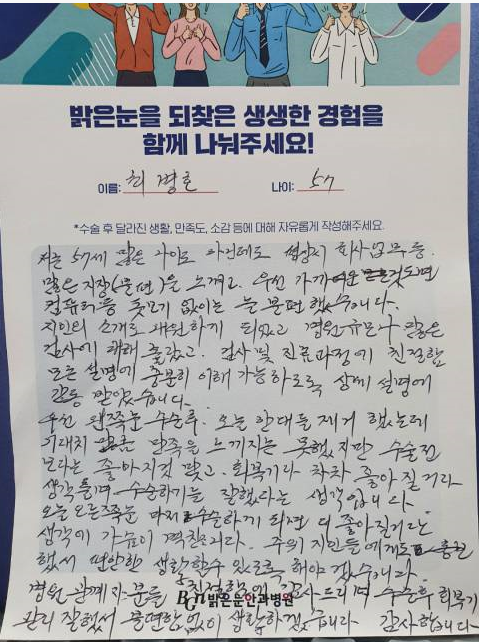 밝은눈을 되찾은 생생한 경험을
함께 나눠주세요!
이름: 최병호 나이: 57
*수술 후 달라진 생활, 만족도, 소감 등에 대해 자유롭게 작성해주세요.
저는 57세 많은 나이도 아닌데도 회사업무등
많은 지장(불편)을 느끼고. 우선 가까운
컴퓨터등 돋보기 없이는 늘 불편했습니다.
지인의 소개로 내원하게 되었고 병원규모나 많은
검사에 놀랐고. 검사 및 진료과정에 친절함
모든 설명에 충분히 이해 가능하도록 상세 설명에
감동 받았습니다.
우선 왼쪽눈 수술후. 오늘 안대를 제거 했는데
기대치 만큼 만족을 느끼지는 못했지만 수술전
보다는 좋아진것 맞고. 회복기라 차차 좋아 질거라
생각들며 수술하기를 잘했다는 생각입니다.
오늘 오른쪽눈 마저 수술하게 되면 더 좋아질거란
생각에 가슴이 벅찬니다. 주위 지인들에게도
했서 편안한 생활할수 있도록 해야 겠습니다.
병원 관계자분들 친절함에 감사드리며 수술후 회복기
관리 잘했서 불편함없이 생활하겠습니다 감사합니다
BGN 밝은눈안과병원